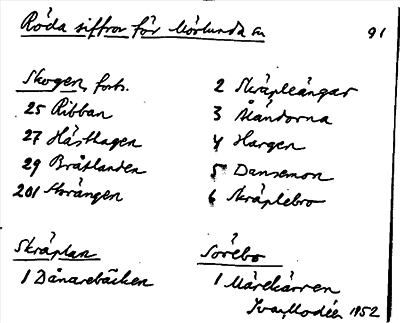 Röda siffror för Mörlunda sn
91
Skogen, forts.
25 Ribban
27 Hästhagen
29 Bråtlanden
201 Storängen
Skräplan
1 Dånarebäcken
2 Skräpleängar
3 Åländorna
4 Hargen
5 Dansemon
6 Skräplebro
Sörebo
1 Märekärren
Ivar Modéer 1952